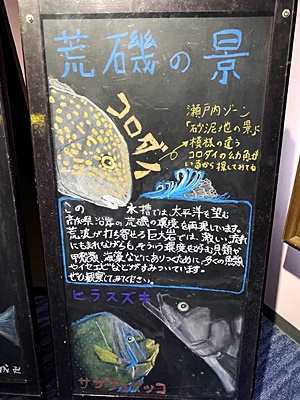 荒磯の景
コロダイ
瀬戸内ゾーン
「砂泥地の景」
模様の違う
コロダイの幼魚を
探してみてね
この 水槽では、太平洋を望む
高知県沿岸の荒磯の環境を再現しています。
荒波が打ち寄せる巨大岩では、激しい流れ
にもまれながらも、そういう環境を好む貝類や
甲殻類、海藻などにありつくために、多くの魚類
やイセエビなどがすみついています。
ぜひ観察してみてください。
ヒラスズキ
サザナミヤッコ